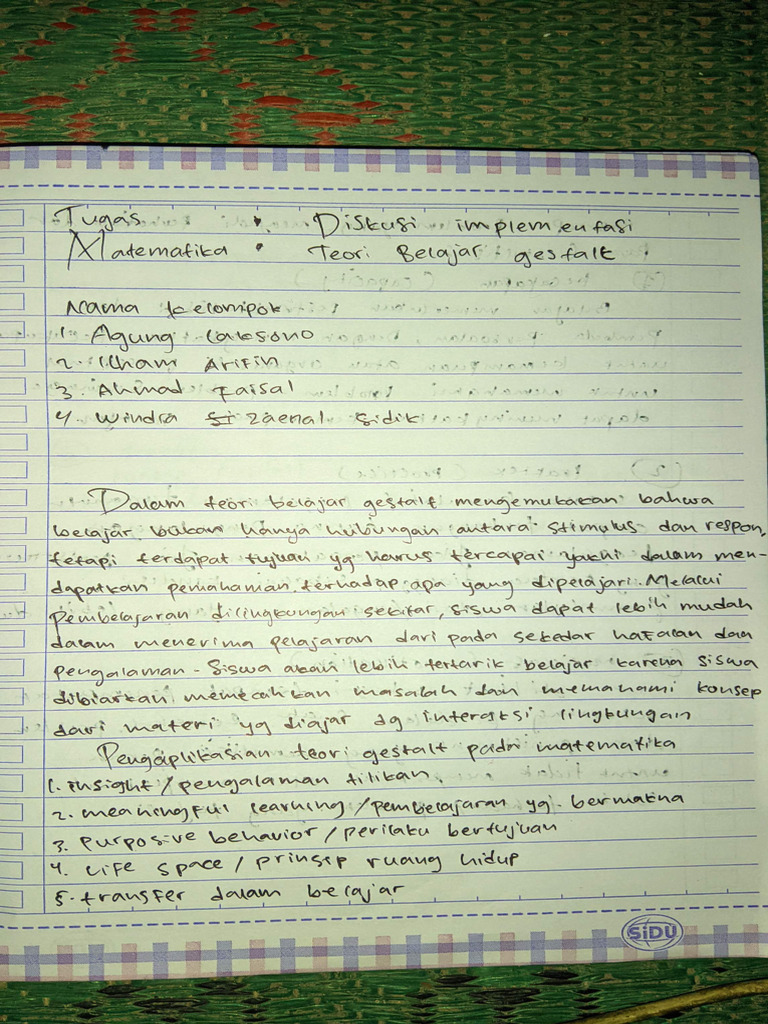 Tugas : Diskusi implementasi
Matematika : Teori Belajar gestalt
Nama kelompok
1. Agung Laksono
2. Ilham Arifin
3. Ahmad Faisal
4. Windra Zaenal Sidik
Dalam teori belajar gestalt mengemukakan bahwa
belajar bukan hanya hubungan antara stimulus dan respon,
tetapi terdapat tujuan yg harus tercapai yakni dalam men-
dapatkan pemahaman terhadap apa yang dipelajari. Melalui
Pembelajaran dilingkungan sekitar, siswa dapat lebih mudah
dalam menerima pelajaran dari pada sekedar hafalan dan
pengalaman. Siswa akan lebih tertarik belajar karena siswa
dibiarkan memecahkan masalah dan memahami konsep
dari materi yg diajar dg interaksi lingkungan
Pengaplikasian teori gestalt pada matematika
1. insight / pengalaman tilikan.
2. meaningful learning / pembelajaran yg bermakna
3. purposive behavior / perilaku bertujuan
4. Life space / prinsip ruang hidup
5. transfer dalam belajar
SiDU